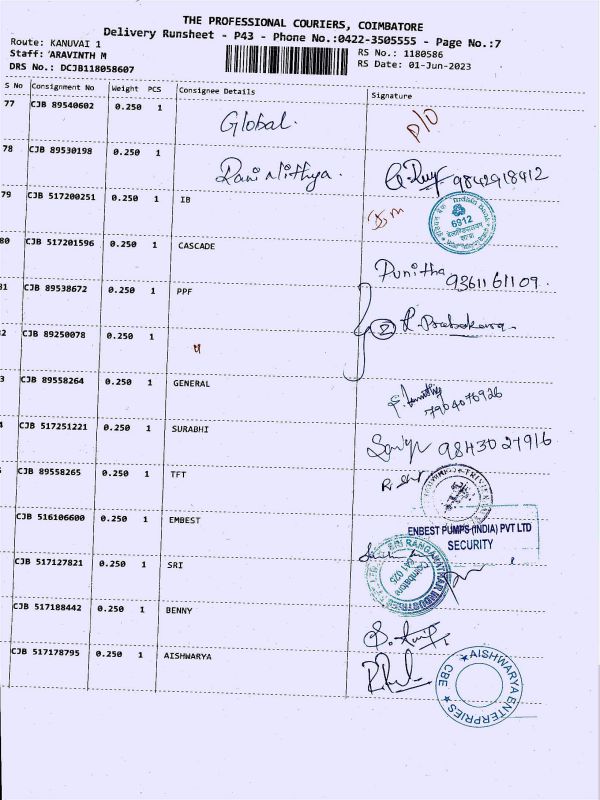 THE PROFESSIONAL COURIERS, COIMBATORE
Delivery Runsheet - P43 - Phone No.:0422-3505555 - Page No.:7
Route: KANUVAI 1
Staff: ARAVINTH M
DRS No.: DCJB118058607
RS No.: 1180586
RS Date: 01-Jun-2023
S No Consignment No Weight PCS Consignee Details Signature
77 CJB 89540602 0.250 1 Global. P/O
78 CJB 89530198 0.250 1 Rani Nithya. 9842918412
79 CJB 517200251 0.250 1 IB
Indian Bank
6912
80 CJB 517201596 0.250 1 CASCADE Punitha 9361161109.
81 CJB 89538672 0.250 1 PPF
2 CJB 89250078 0.250 1 "
3 CJB 89558264 0.250 1 GENERAL 7904076926
4 CJB 517251221 0.250 1 SURABHI 9843027916
CJB 89558265 0.250 1 TFT
CJB 516106600 0.250 1 EMBEST
ENBEST PUMPS (INDIA) PVT LTD
SECURITY
CJB 517127821 0.250 1 SRI
SRI RANGAMATHAR INDUSTRIES
641 025
Coimbatore
CJB 517188442 0.250 1 BENNY
CJB 517178795 0.250 1 AISHWARYA
AISHWARYA ENTERPRIES
CBE